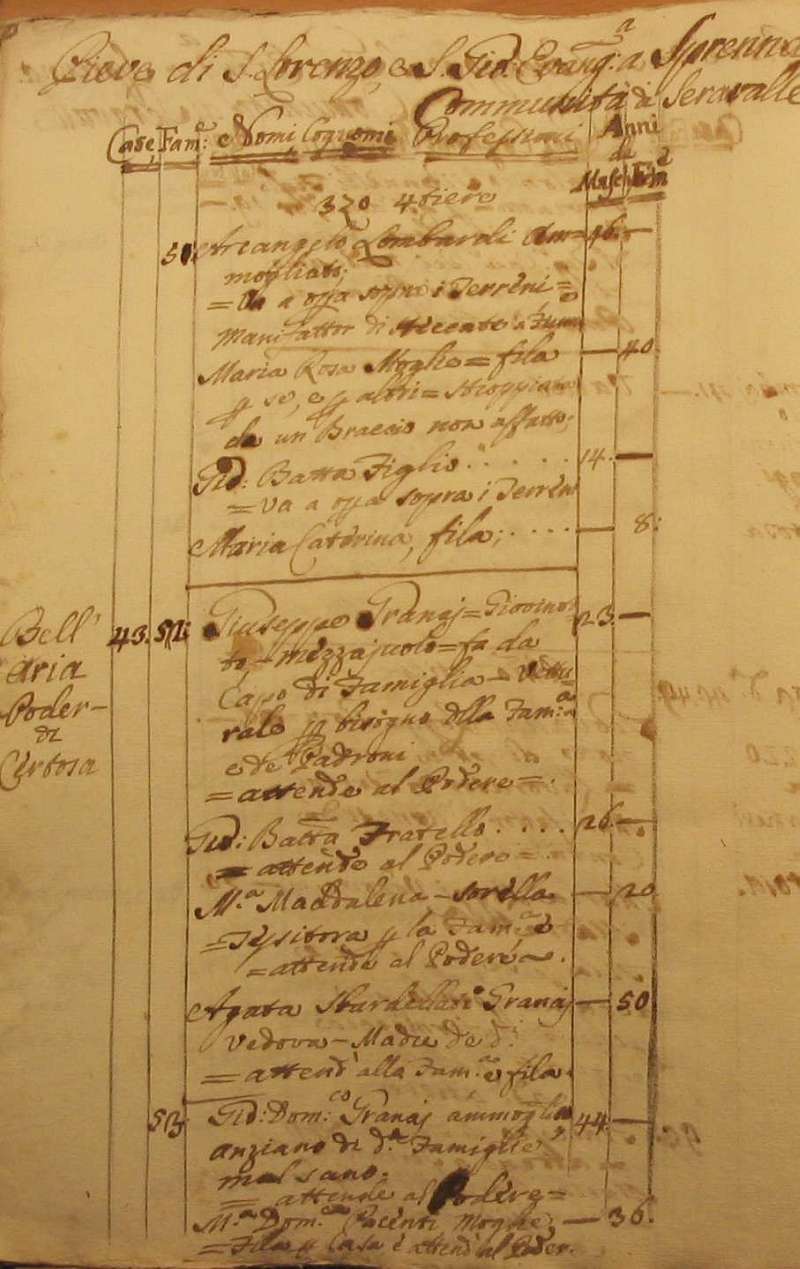 Pieve di S. Lorenzo, e S. Gio: Evang:a a Sprenna
Communità di Seravalle
Case, Fam:e e Nomi, Cognomi Professioni Anni
de
Masc: Fem
320
50 Arcangelo Lombardi Am= 46. —
mogliato;
= Va a opa sopra i Terreni =
Manifattor di
Maria Rosa Moglie = fila — 40
p se, e p altri = Stroppiata
da un Braccio non affatto;
Gio: Batta Figlio . . . . . 14. —
= va a opa sopra i Terreni
Maria Caterina, fila; . . . . — 8:
Bell'
Aria
Poder-
di
Certosa
43. 51: Giuseppe Granaj = Giovinot 23. —
to, - mezzajuolo = fa da
Capo di Famiglia - Vettu
rale p bisogno della Fam:a
e de Padroni
= attende al Podere = .
Gio: Batta Fratello . . . . 26. —
= attende al Podere = .
M.a Maddalena - sorella — 20
= Tessitora p la Fam:a e
= attende al Podere ~ .
Agata Granaj — 50
Vedova - Madre de d.i
= attend alla Fam:a e fila
52 Gio: Dom:co Granaj ammogliato 44. —
anziano di d.a Famiglia
mal sano.
= attende al Podere =
M.a Dom:ca Pacenti Moglie; — 36.
= Fila p Casa e attend al Poder.